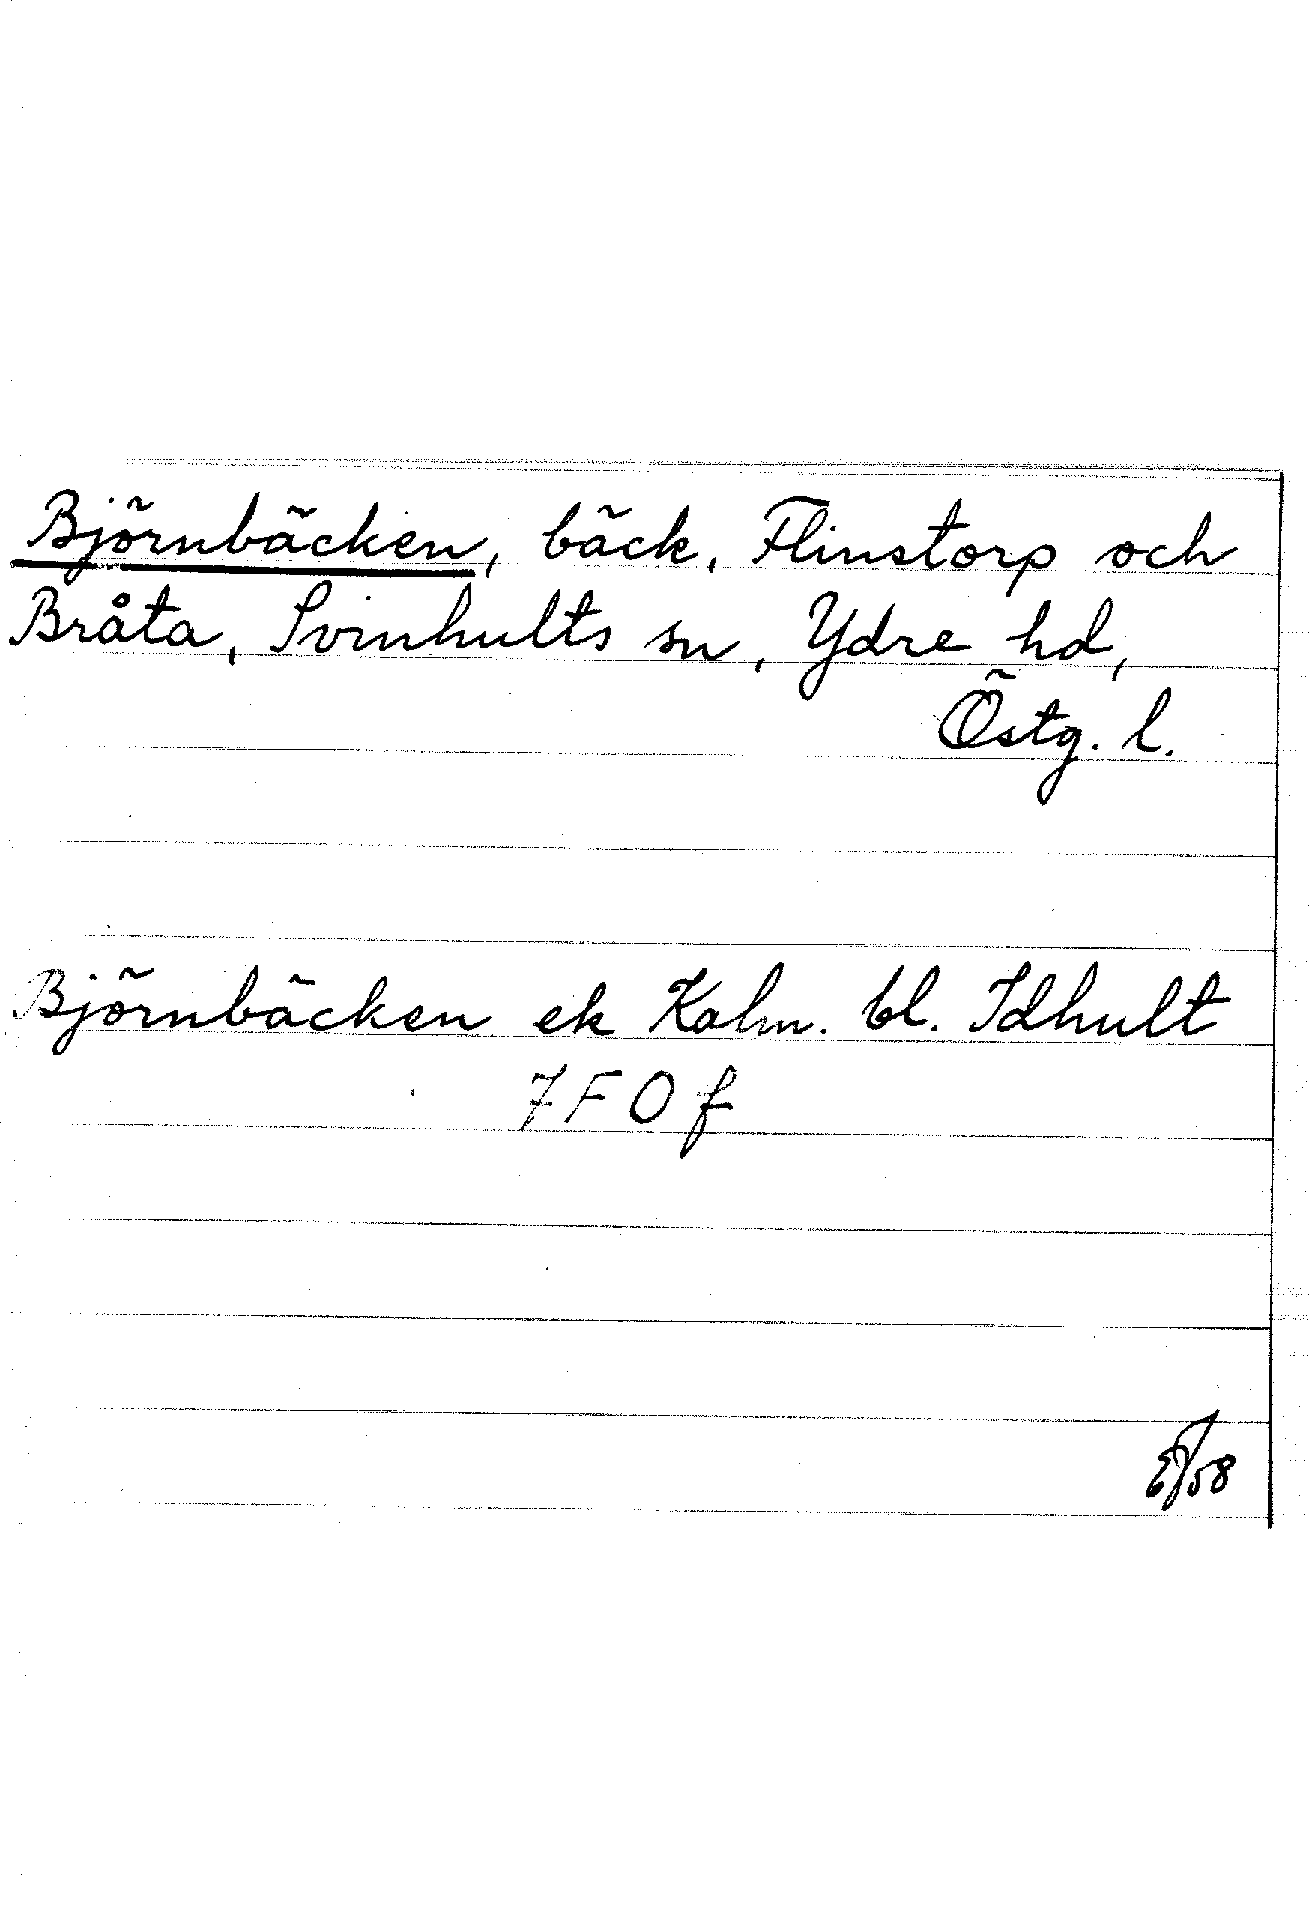 Björnbäcken, bäck, Flinstorp och
Bråta, Svinhults sn, Ydre hd,
Östg. l.
Björnbäcken ek Kalm. bl. Idhult
7F0f
/58